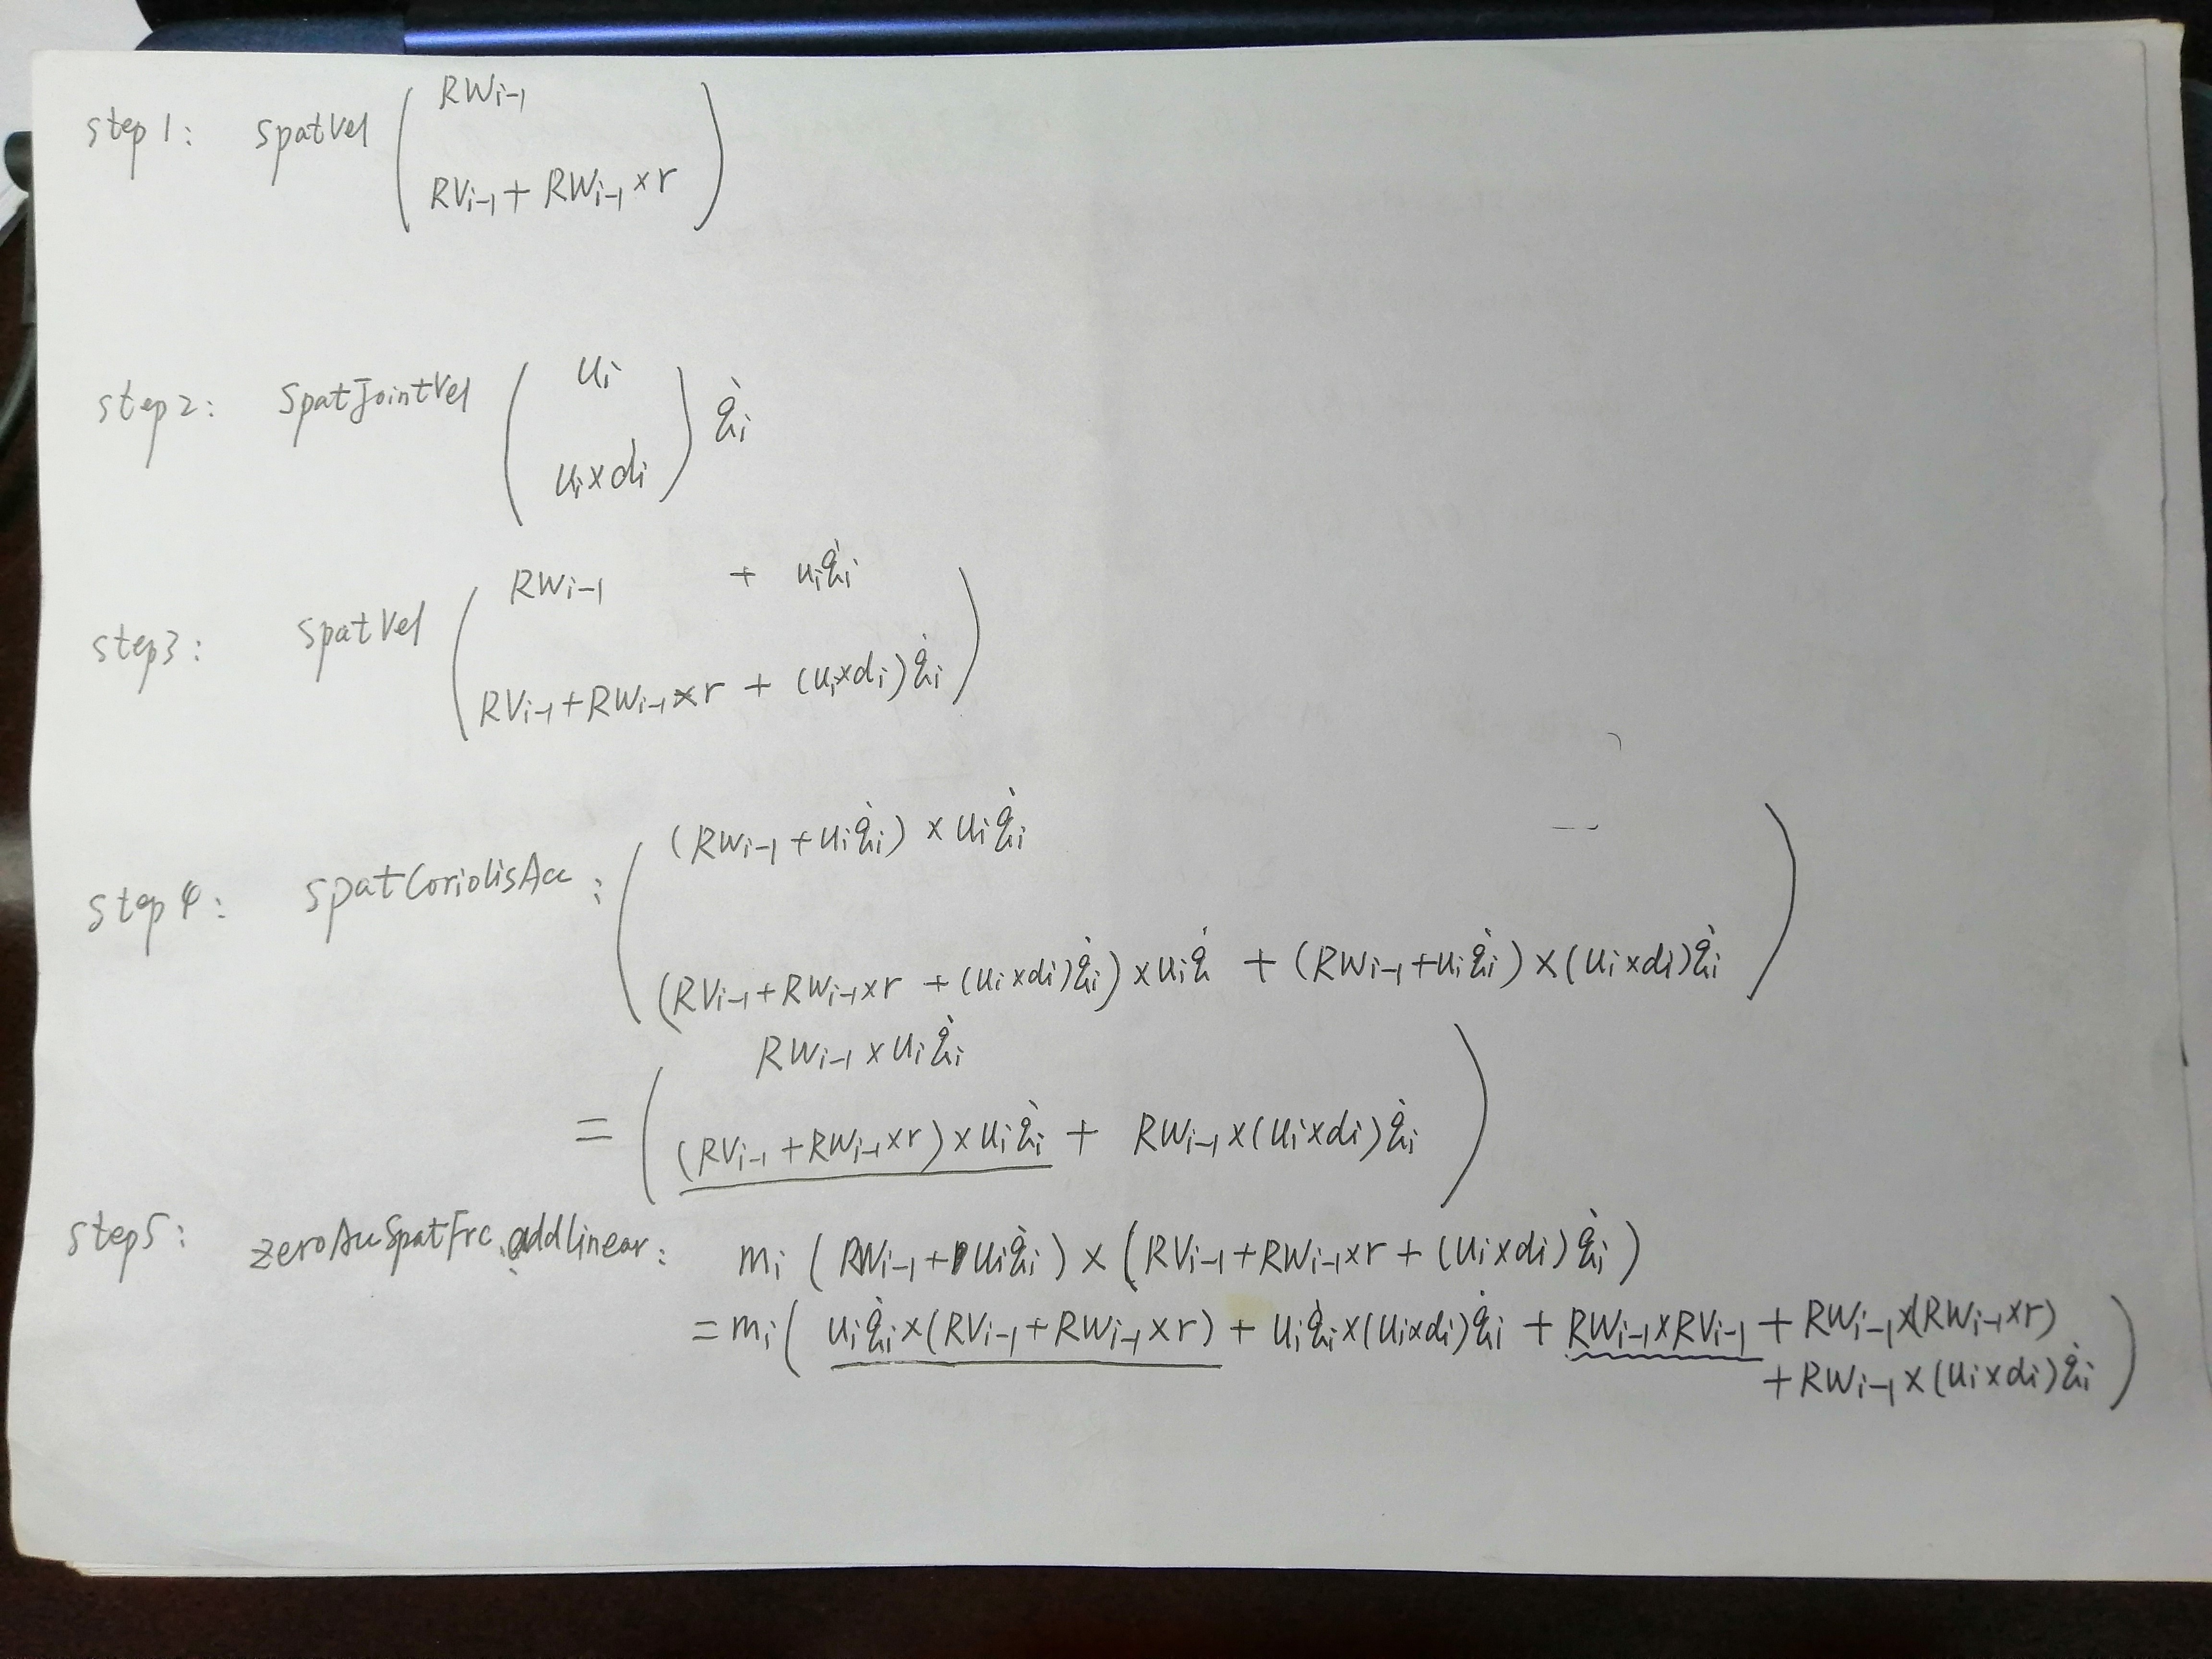 step 1: spatVel ( RWi-1
RVi-1 + RWi-1 × r )
step 2: SpatJointVel ( ui
ui×di ) q̇i
step3: SpatVel ( RWi-1 + uiq̇i
RVi-1+RWi-1×r + (ui×di)q̇i )
step 4: SpatCoriolisAcc : ( (RWi-1 + uiq̇i) × uiq̇i
(RVi-1+RWi-1×r + (ui×di)q̇i) × uiq̇ + (RWi-1+uiq̇i) × (ui×di)q̇i )
= ( RWi-1 × uiq̇i
(RVi-1 +RWi-1×r) × uiq̇i + RWi-1×(ui×di)q̇i )
step5: zeroAccSpatFrc.addlinear: mi ( RWi-1 + uiq̇i ) × (RVi-1+RWi-1×r + (ui×di)q̇i )
= mi( uiq̇i×(RVi-1+RWi-1×r) + uiq̇i×(ui×di)q̇i + RWi-1×RVi-1 + RWi-1×(RWi-1×r)
+ RWi-1×(ui×di)q̇i )